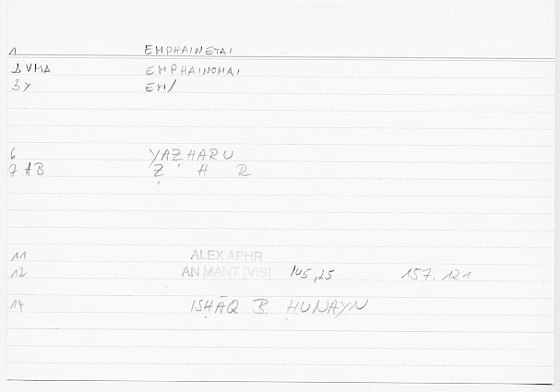 1 EMPHAINETAI
2 VMA EMPHAINOMAI
3 Y EM/
6 YAẒHARU
7 AB Ẓ H R
11 ALEX APHR
12 AN MANT [VIS] 145,25 157.121
14 ISḤĀQ B. ḤUNAYN